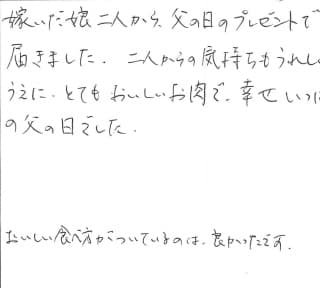 嫁いだ娘二人から、父の日のプレゼントで
届きました。二人からの気持ちもうれし
うえに、とてもおいしいお肉で、幸せいっぱ
の父の日でした。
おいしい食べ方がついているのは、良かったです。